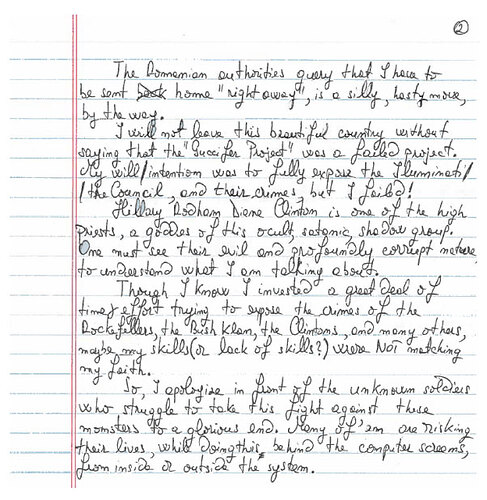 2
The Romanian authorities query that I have to
be sent back home "right away", is a silly, hasty move,
by the way.
I will not leave this beautiful country without
saying that the "Guccifer Project" was a failed project.
My will/intention was to fully expose the Iluminati/
/the Council, and their crimes, but I failed!
Hillary Rodham Diane Clinton is one of the high
priests, a goddes of this occult, satanic, shadow group.
One must see their evil and profoundly corrupt nature
to understand what I am talking about.
Though I know I invested a great deal of
time, effort trying to expose the crimes of the
Rockefellers, the Bush klan, the Clintons, and many others,
maybe my skills (or lack of skills?) were NOT matching
my faith.
So, I apologise in front of the unknown soldiers
who struggle to take this fight against these
monsters to a glorious end. Many of 'em are risking
their lives, while doing this, behind the computer screens,
from inside or outside the system.